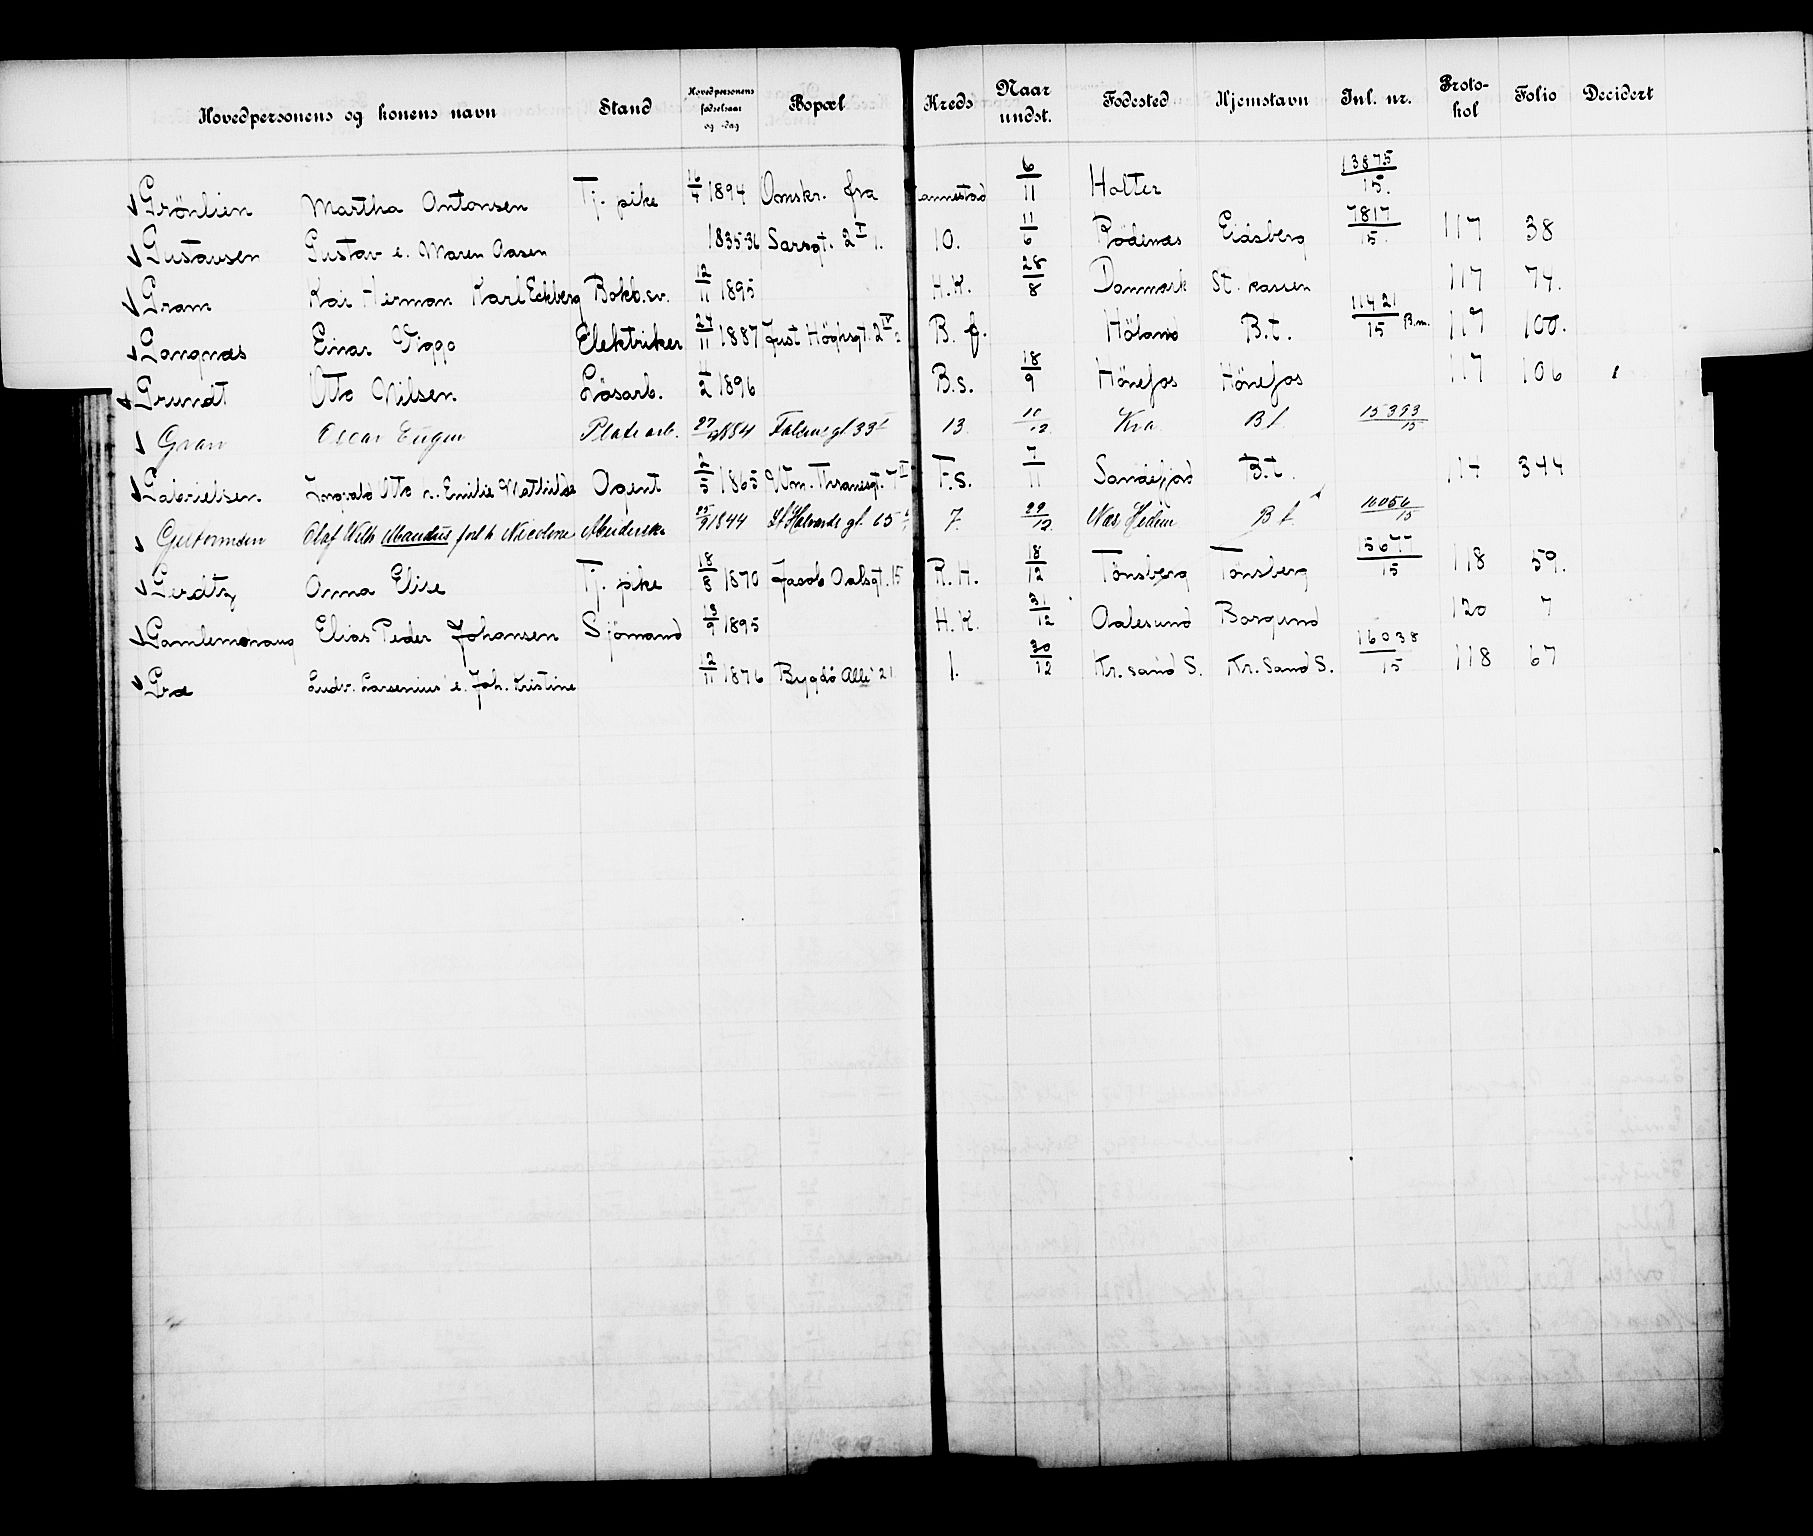 Hovedpersonens og konens navn Stand Hovedpersonens fødselsaar og -dag Bopæl Kreds Naar undst. Fødested Hjemstavn Jnl. nr. Proto-kol Folio Decidert
Grönlien Martha Antonsen Tj. pike 16/4 1894 Omskr. fra Nannestad 6/11 Holter 13875/15.
Gustavsen Gustav e. Maren Aasen 1835-36 Sarsgt. 2 I 1. 10. 11/6 Rödenæs Eidsberg 7817/15. 117 38
Gram Kai Herman Karl Eckberg Bokb.sv. 12/11 1895 H.K. 28/8 Danmark St. kassen 117 74.
Langnæs Einar Viggo Elektriker 24/11 1887 Just Höghsgt. 2 IV 2 B. f. Höland B.t. 11421/15 B.m. 117 100.
Grundt Otto Nilsen Lösarb. 4/2 1896 B.s. 18/9 Hönefos Hönefos 117 106
Gran Oscar Eugen Platearb. 27/4 1884 Falsens gt 33 I 13 10/12 Kra B t 15393/15
Gabrielsen Ingvald Otto e. Emilie Mathilde Agent 2/5 1865 Wm. Thranesgt. II F.S. 7/11 Sandefjord B.t. 117 344
Guttormsen Olaf Wilh Abandus forl h Nicoline Arbeiderske 25/9 1844 St Halvards gt. 65 7. 22/12 Næs Hedm B t 16056/15
Gerdtz Anna Elise Tj. pike 18/8 1870 Jacob Aalsgt. 15 R.H. 18/12 Tönsberg Tönsberg 15677/15 118 59.
Gamlemshaug Elias Peder Johansen Sjömand 13/9 1895 H.K. 31/12 Aalesund Borgund 120 7
Græ Ludv. Larsenius e. Joh. Kristine 12/11 1876 Bygdö Alle 21 1. 30/12 Kr.sand S. Kr.sand S. 16038/15 118 67